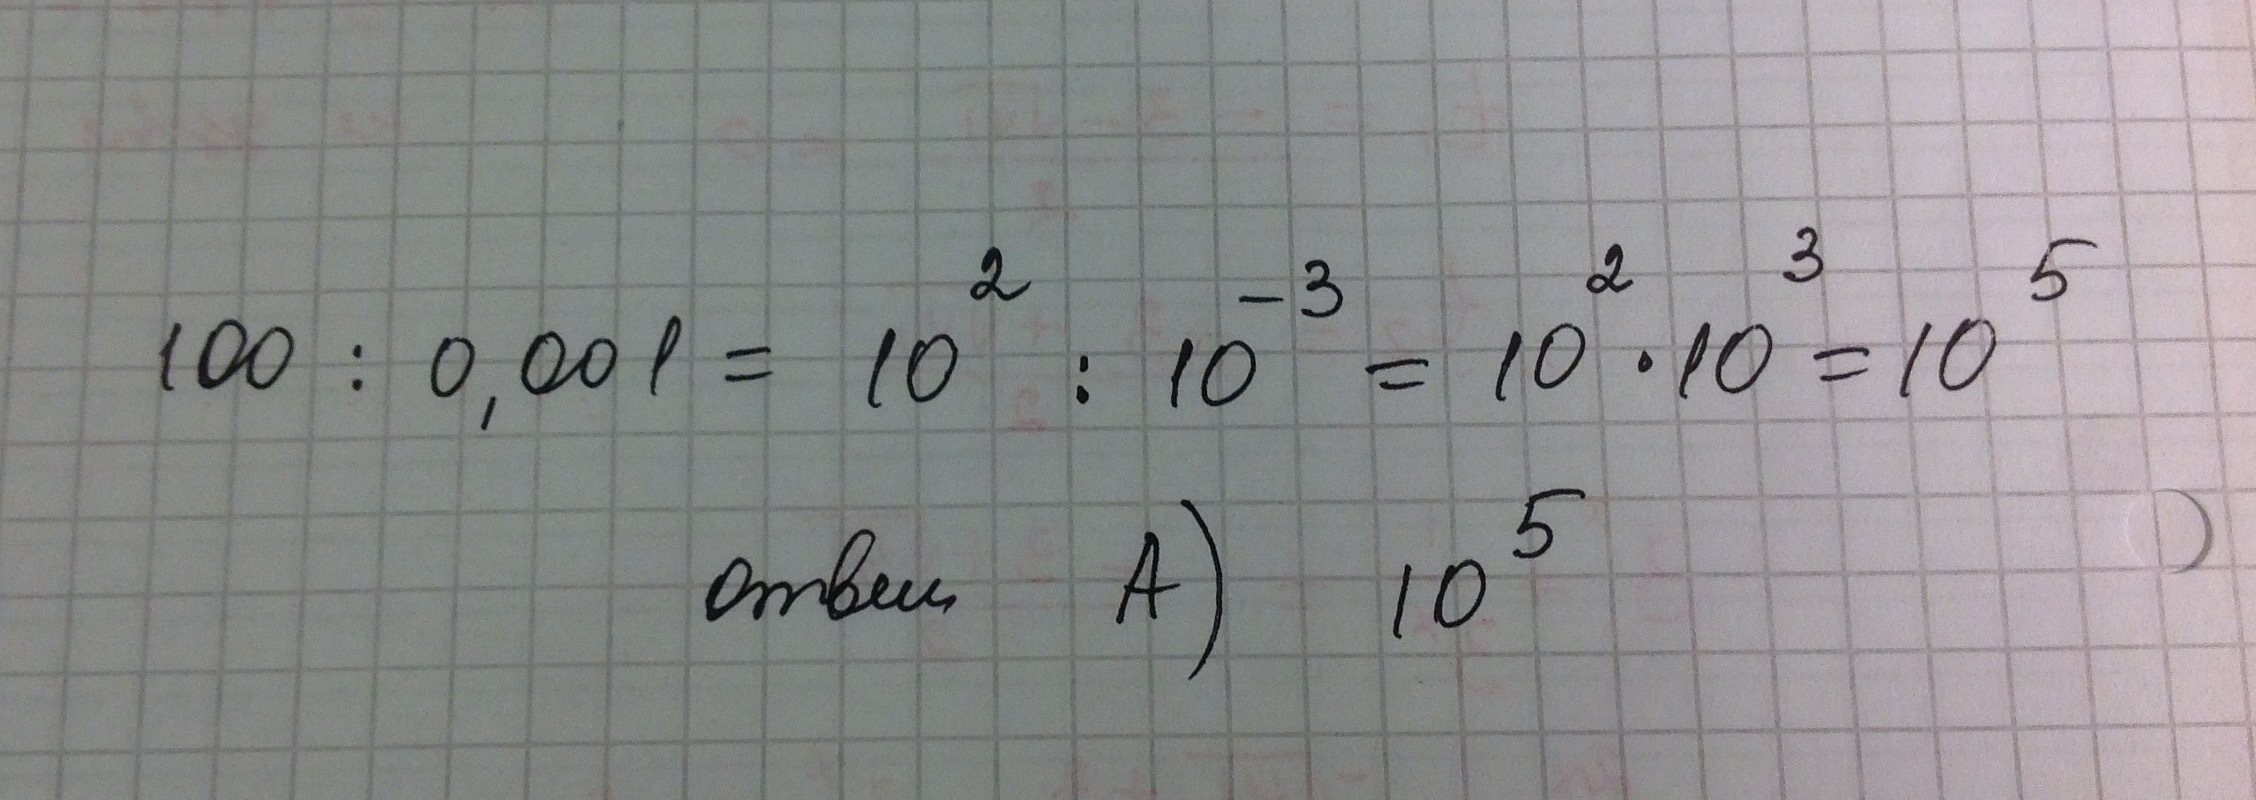 100 : 0,001 = 10² : 10⁻³ = 10² · 10³ = 10⁵
ответ А) 10⁵